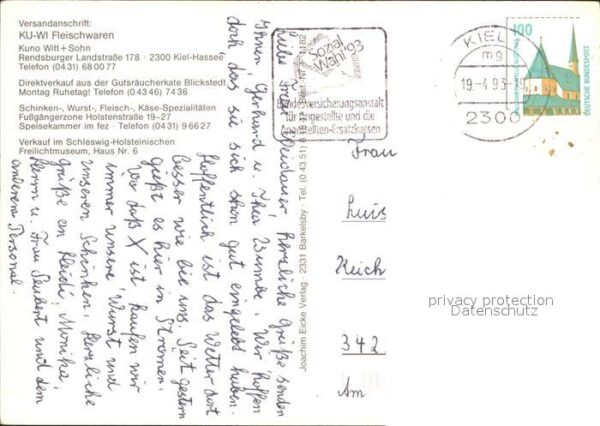 Versandanschrift:
KU-WI Fleischwaren
Kuno Witt+Sohn
Rendsburger Landstraße 178 · 2300 Kiel-Hassee
Telefon (0431) 68 00 77
Direktverkauf aus der Gutsräucherkate Blickstedt
Montag Ruhetag! Telefon (0 43 46) 74 36
Schinken-, Wurst-, Fleisch-, Käse-Spezialitäten
Fußgängerzone Holstenstraße 19–27
Speisekammer im fez · Telefon (04 31) 9 66 27
Verkauf im Schleswig-Holsteinischen
Freilichtmuseum, Haus Nr. 6
Liebe Frau herzliche Grüße senden
Ihnen, Gerhard u. Ihr Wir hoffen
doch, das sie sich schon gut eingelebt haben.
Hoffentlich ist das Wetter dort
besser wie bei uns. Seit gestern
gießt es hier in Strömen.
daß X ist kaufen wir
immer unsere Wurst und
unseren Schinken. Herzliche
Grüße an Heidi, Monika,
Herrn u. Frau und dem
anderen Personal.
Joachim Eicke Verlag · 2331 Barkelsby · Tel. (0 43 51)
Sozial
Wahl '93
Bundesversicherungsanstalt
für Angestellte und die
Angestellten-Ersatzkassen
KIEL
mg
19.-4.93-
2300
100
DEUTSCHE BUNDESPOST
Frau
Luis
Reich
342
Am
privacy protection
Datenschutz